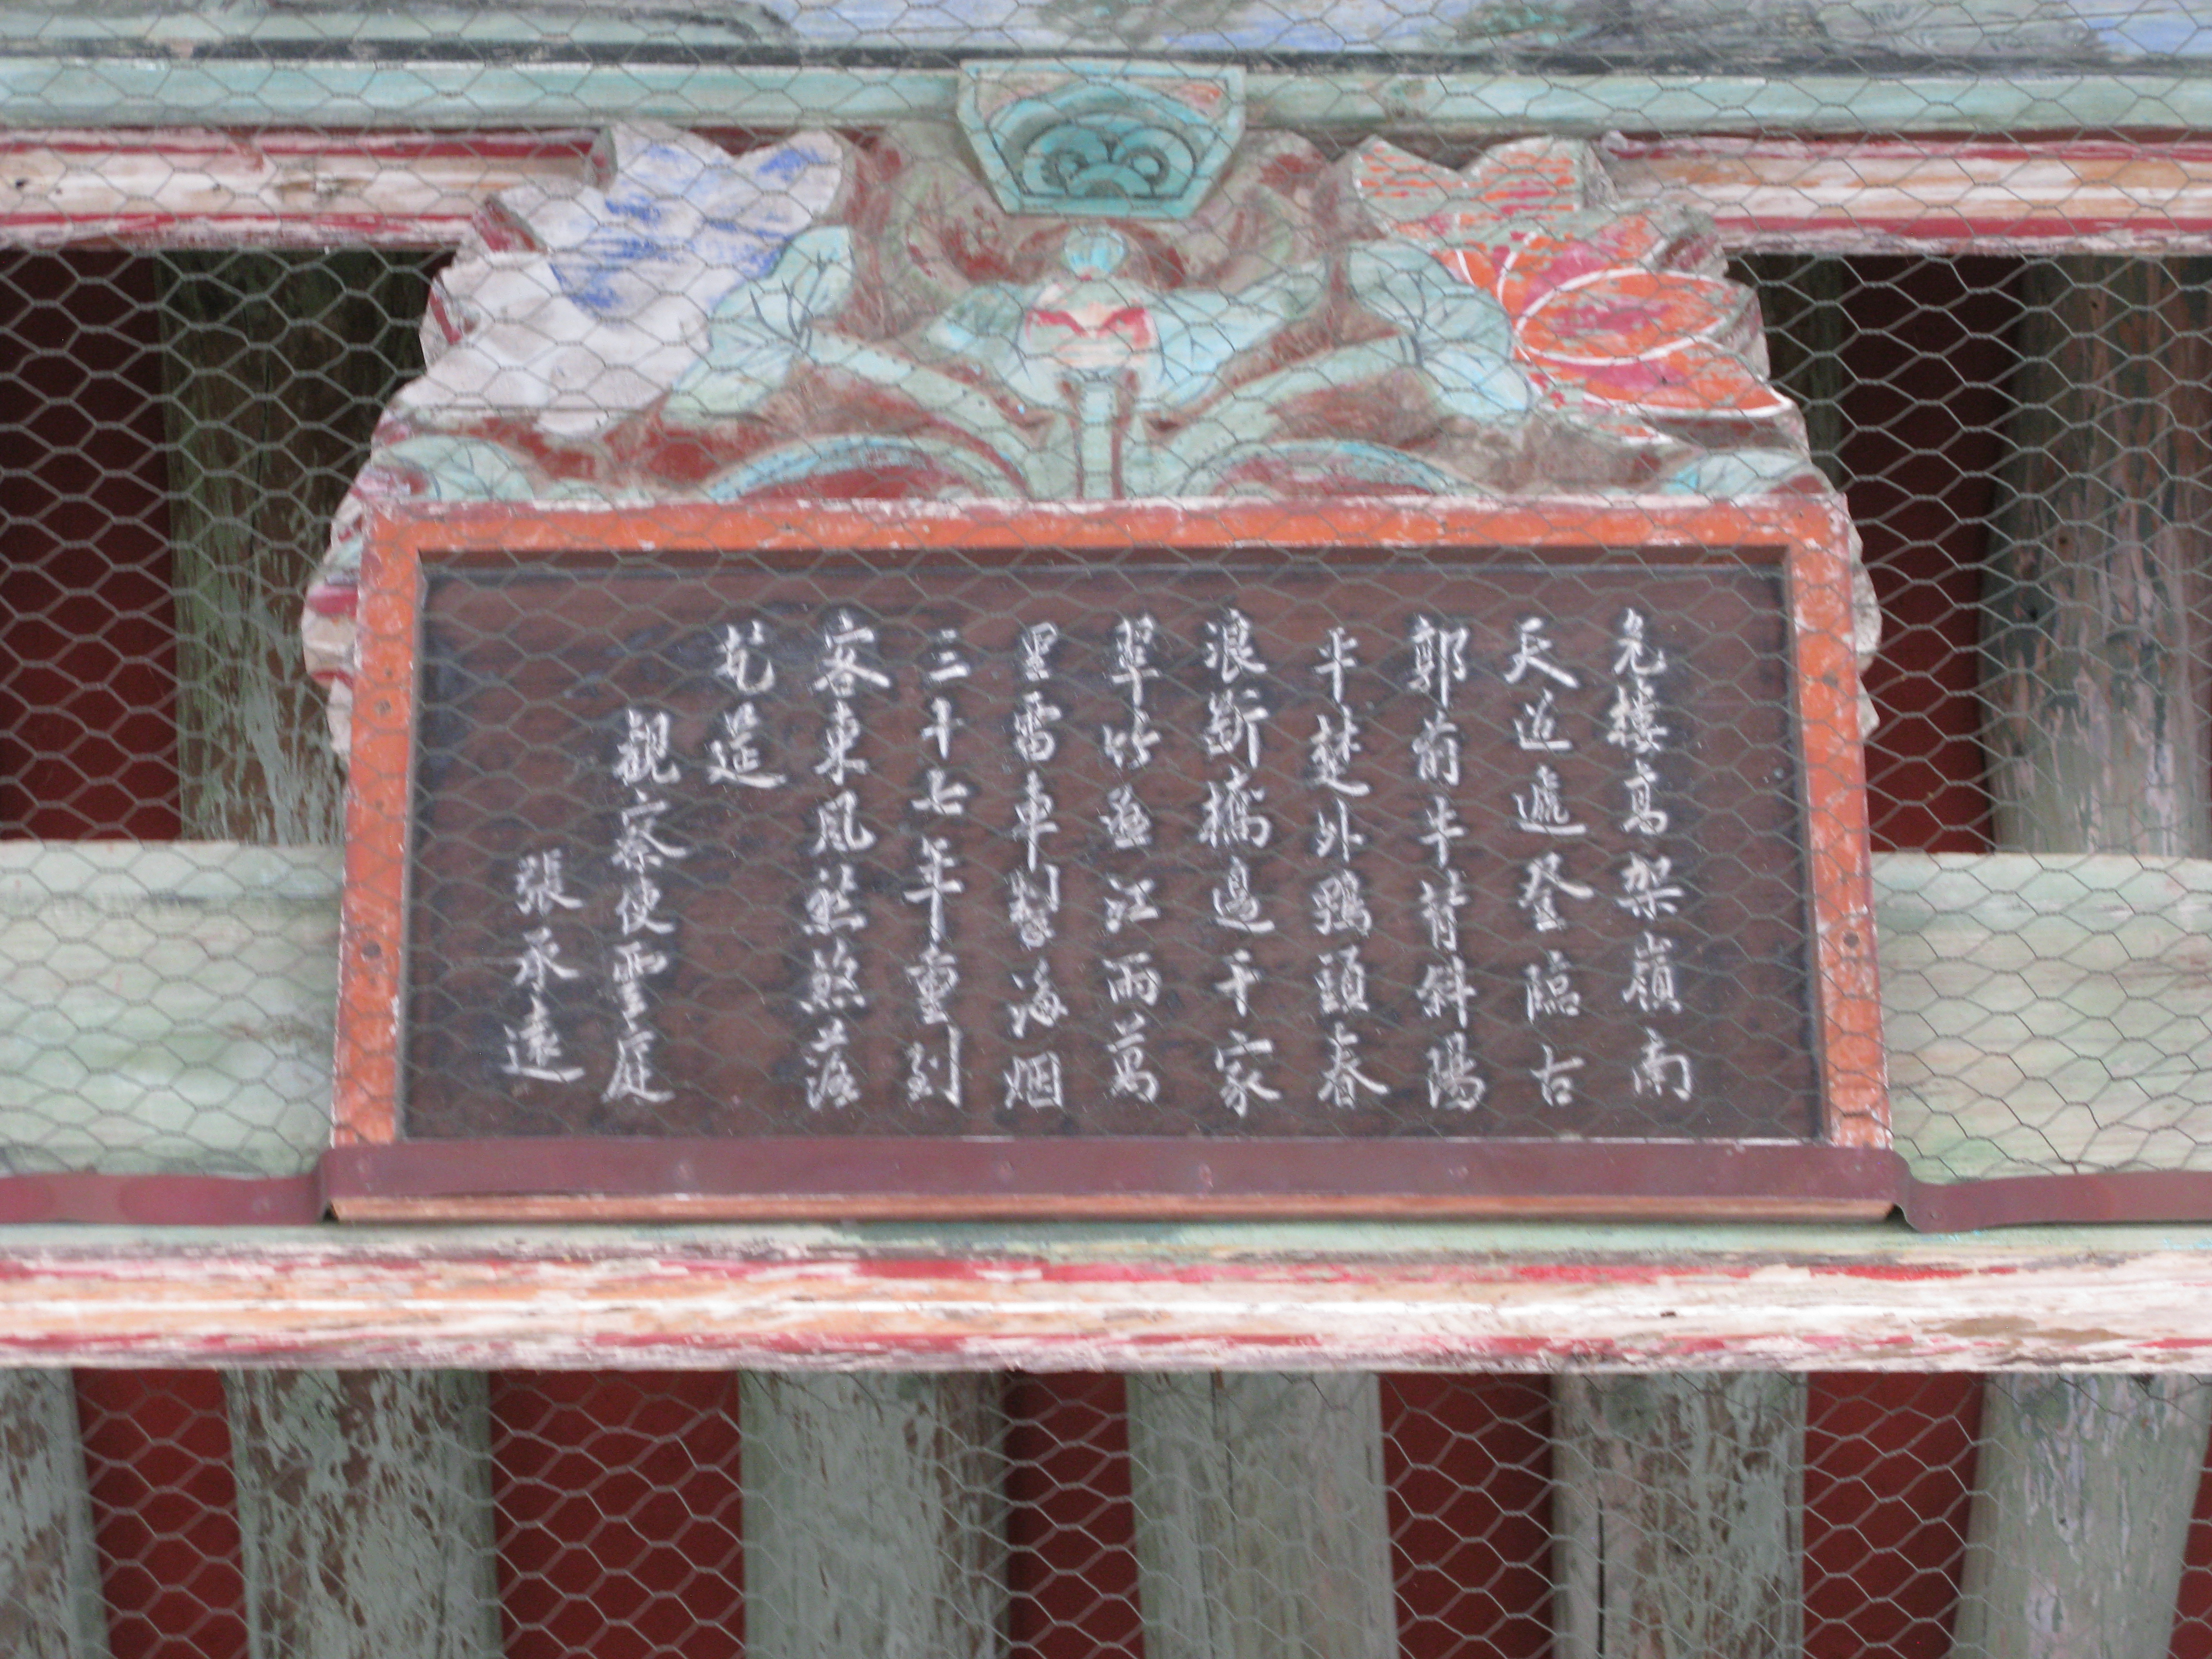 危樓高架嶺南
天迢遞登臨古
郭前牛背斜陽
平楚外鴨頭春
浪斷橋邊千家
翠竹江雨萬
里雷車掣海烟
三十七年重到
客東風煞落
花筵
觀察使聖庭
張承遠